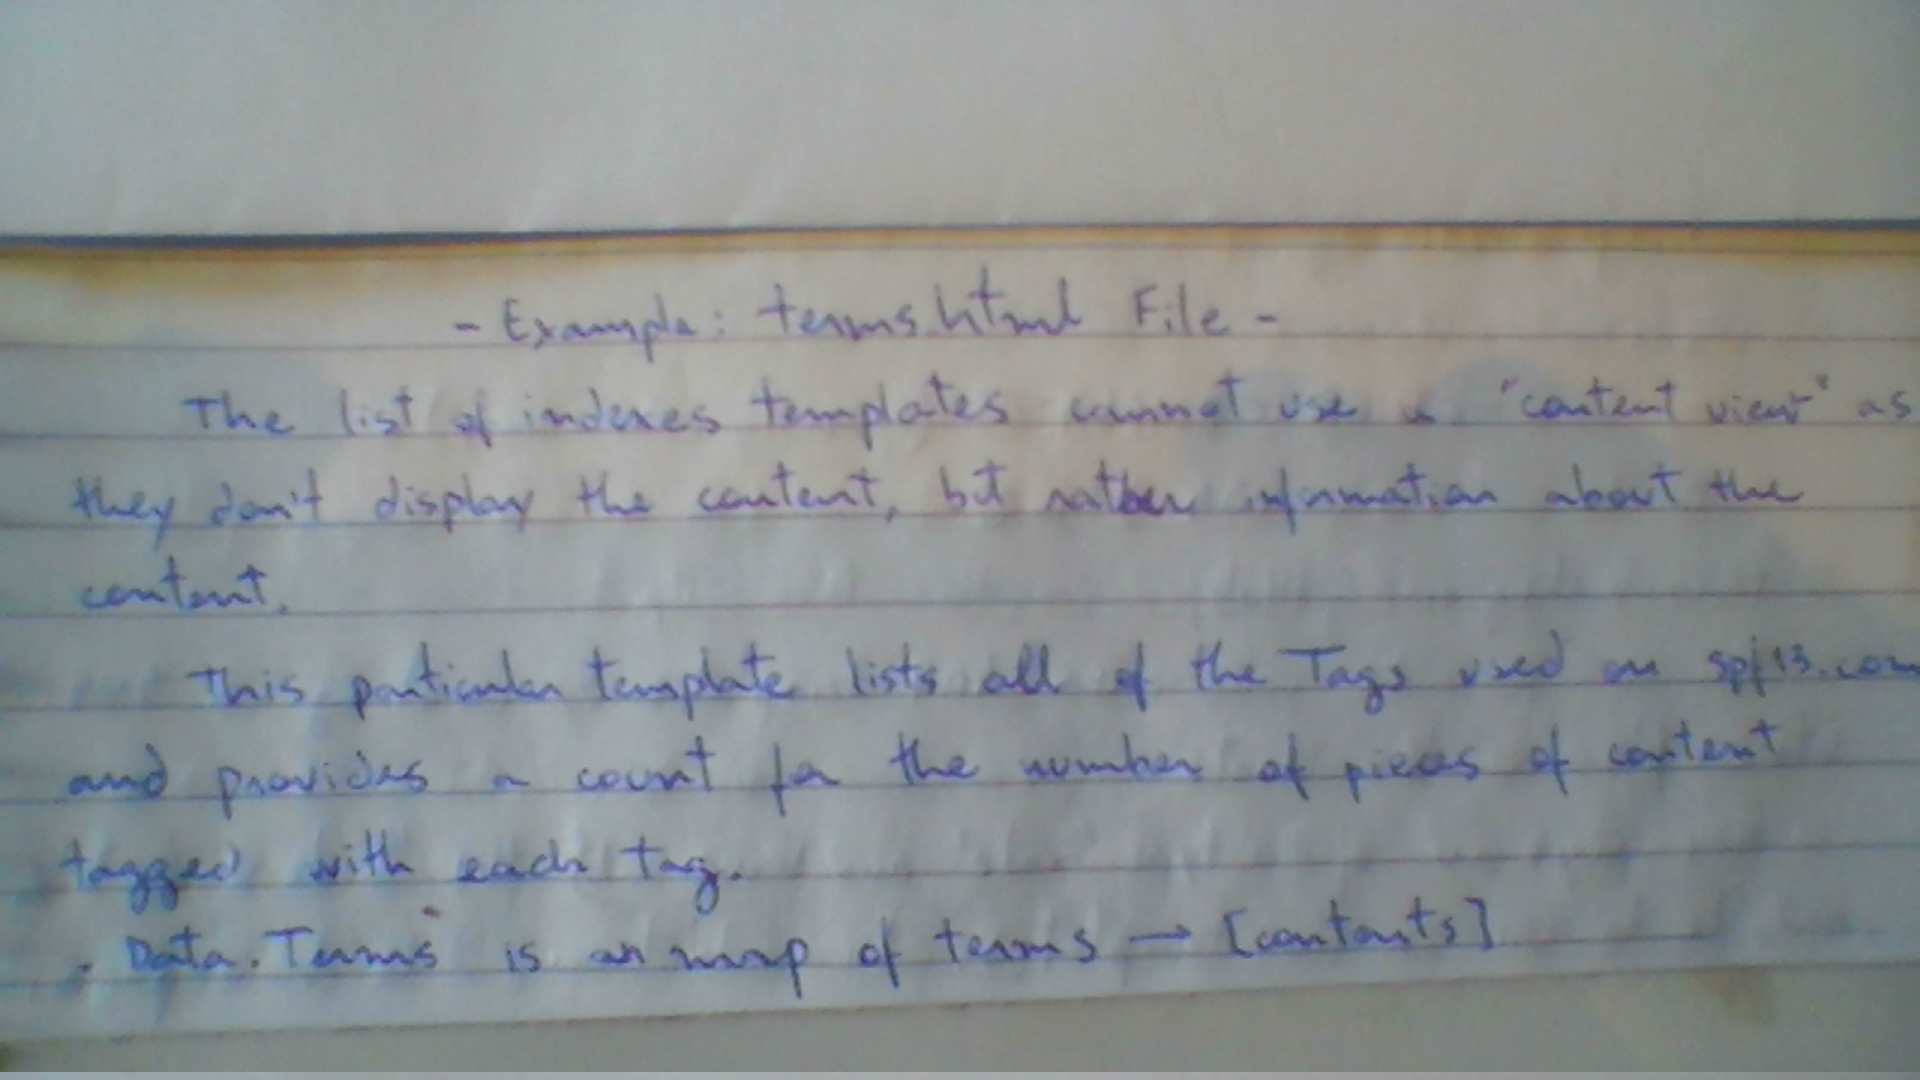 - Example: terms.html File -
The list of indexes templates cannot use a "content view" as
they don't display the content, but rather information about the
content.
This particular template lists all of the Tags used on spf13.com
and provides a count for the number of pieces of content
tagged with each tag.
. Data.Terms is an map of terms → [contents]